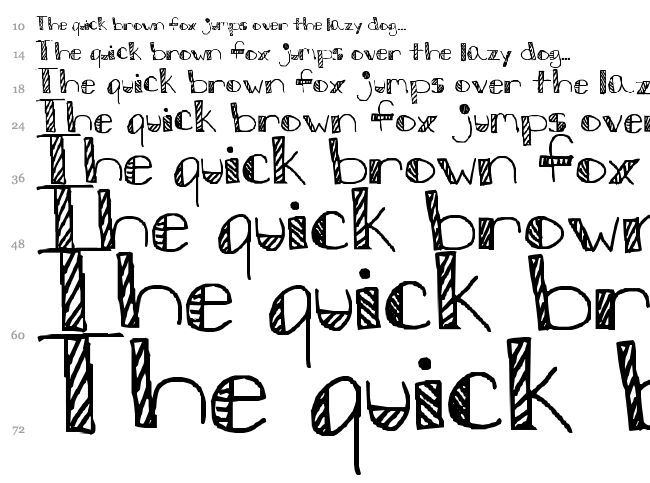 10 The quick brown fox jumps over the lazy dog...
14 The quick brown fox jumps over the lazy dog...
18 The quick brown fox jumps over the laz
24 The quick brown fox jumps over
36 The quick brown fox
48 The quick brown
60 The quick br
72 The quick b